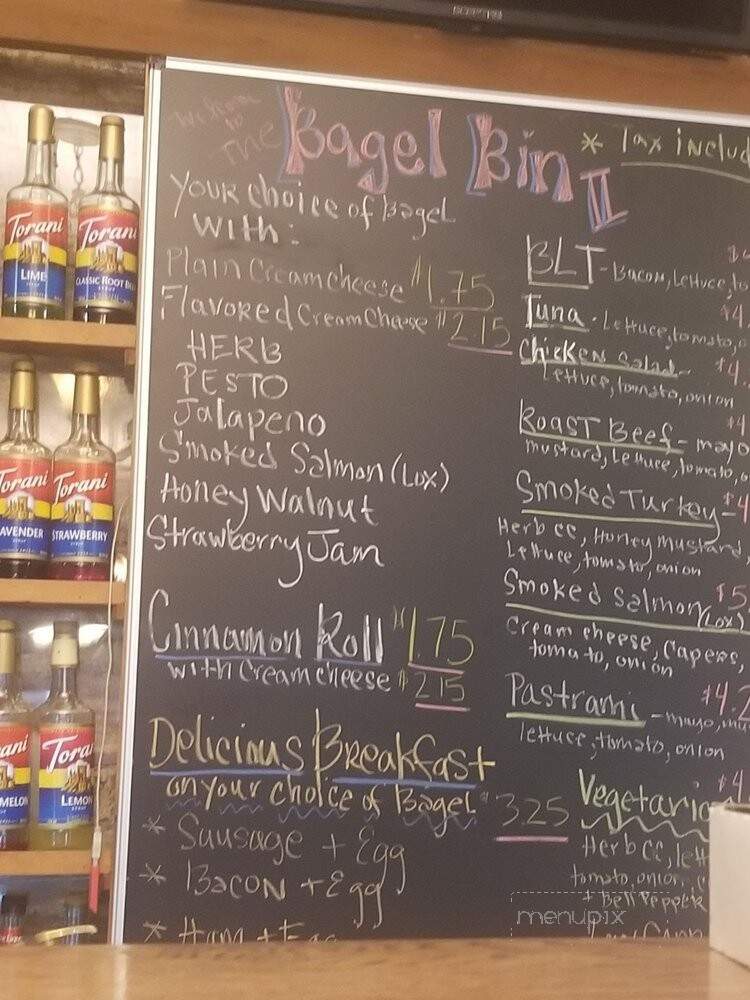 SCEPTRE
Welcome
to
The Bagel Bin II
* Tax includ
Your choice of Bagel
with:
Plain Creamcheese $1.75
Flavored Cream Cheese $2.15
HERB
PESTO
Jalapeno
Smoked Salmon (Lox)
Honey Walnut
Strawberry Jam
Cinnamon Roll $1.75
with Creamcheese $2.15
Delicious Breakfast
on your choice of Bagel $3.25
* Sausage + Egg
* Bacon + Egg
* Ham + Egg
BLT - Bacon, Lettuce, to
Tuna - Lettuce, tomato, o
$4
Chicken Salad - $4.
Lettuce, tomato, onion
Roast Beef - mayo
$4
mustard, Lettuce, tomato, o
Smoked Turkey - $4
Herb cc, Honey mustard,
Lettuce, tomato, onion
Smoked Salmon (Lox) $5
cream cheese, Capers,
tomato, onion
Pastrami - mayo, mu
$4.
lettuce, tomato, onion
Vegetaria
$4
Herb cc, lett
tomato, onion, c
+ Bell Pepper
Torani
LIME
SYRUP
Torani
CLASSIC ROOT BEE
Torani
AVENDER
SYRUP
Torani
STRAWBERRY
SYRUP
ani
MELON
Tora
LEMON
menupix